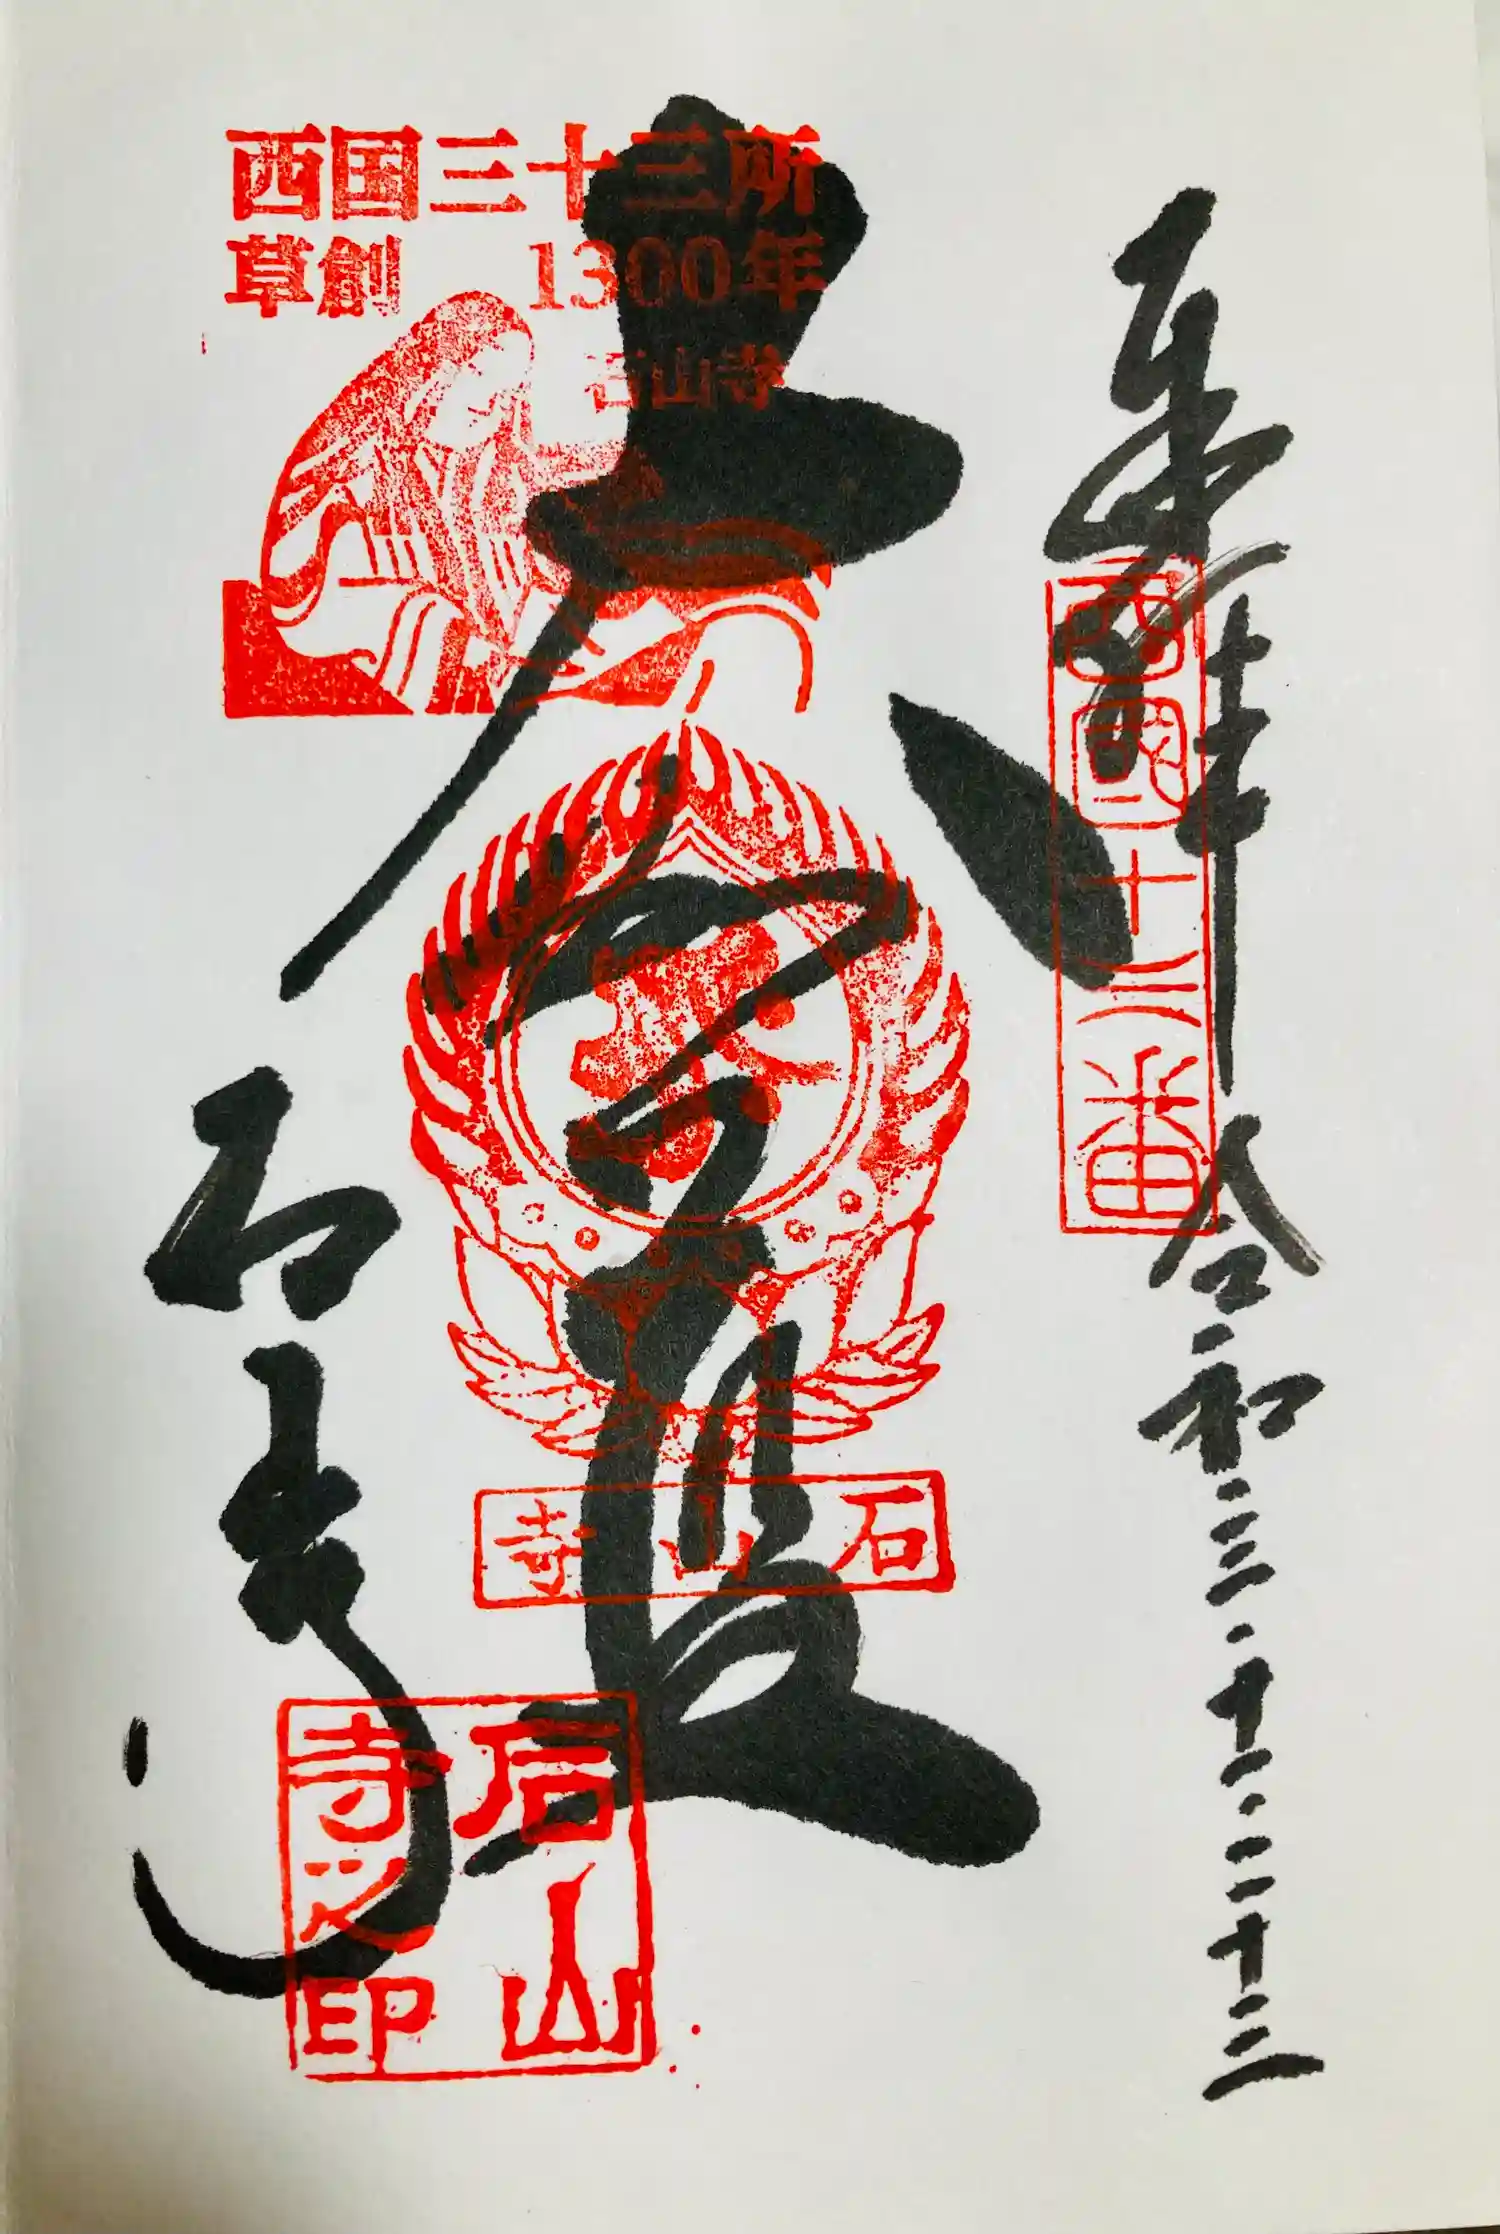 西国三十三所
草創 1300年
石山寺
奉拝
西國十三番
令和三・十一・二十三
大伽藍
石山寺
石山寺
石山寺之印